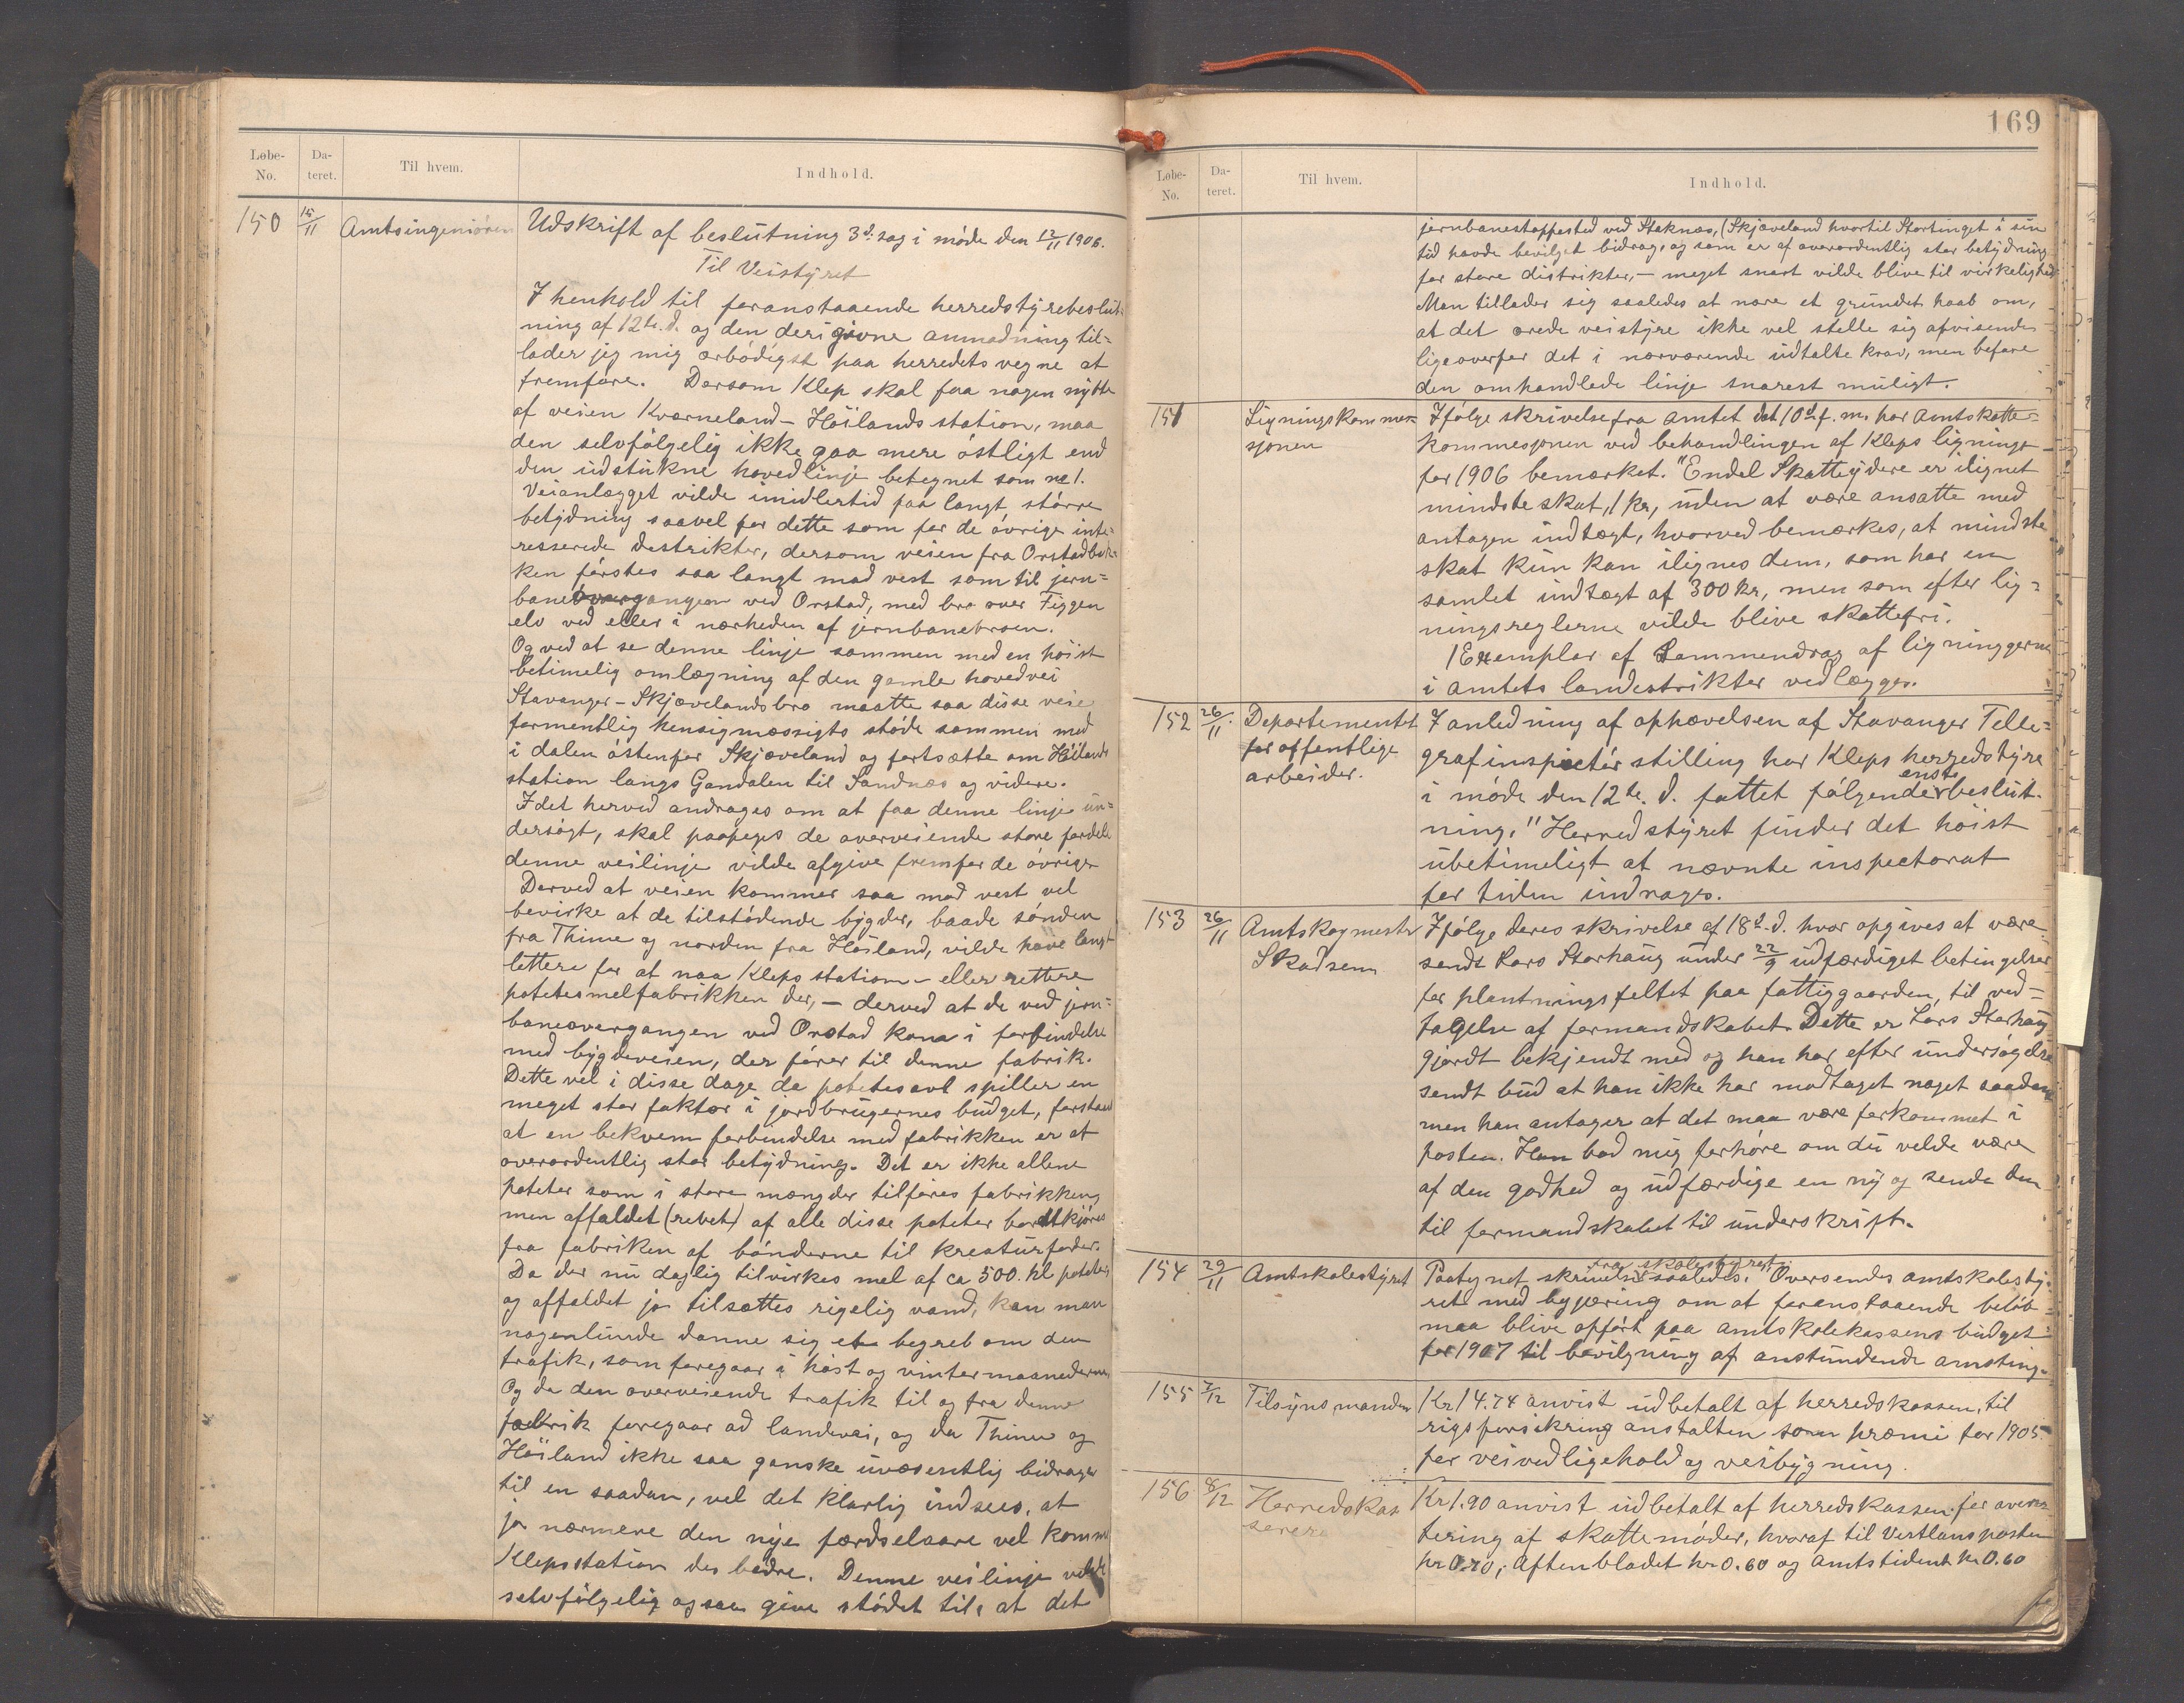 Løbe-No. Dateret. Til hvem. Indhold.
150 15/11 Amtsingeniøren Udskrift af beslutning 3d. sag i møde den 12/11 1906.
Til Veistyret
I henhold til foranstaaende herredstyrebeslut-
ning af 12te. d. og den deri givne anmodning til-
lader jeg mig ærbødigst paa herredets vegne at
fremføre. Dersom Klep skal faa nogen nytte
af veien Kværneland - Höilands station, maa
den selvfölgelig ikke gaa mere östligt end
den udstukne hovedlinje betegnet som no 1.
Veianlægget vilde imidlertid faa langt större
betydning saavel for dette som for de övrige inte-
resserede destrikter, dersom veien fra Orstadbak-
ken förstes saa langt mod vest som til jern-
baneovergangen ved Orstad, med bro over Figgen
elv ved eller i nærheden af jernbanebroen.
Og ved at se denne linje sammen med en höist
betimelig omlægning af den gamle hovedvei
Stavanger - Skjævelandsbro maatte saa disse veie
formentlig hensigmæssigts støde sammen med
i dalen östenfor Skjæveland og fortsætte om Höilands
station langs Gandalen til Sandnæs og videre.
Idet herved andrages om at faa denne linje un-
dersögt, skal paapeges de overveiende store fordele
denne veilinje vilde afgive fremfor de övrige
Derved at veien kommer saa mod vest vel
bevirke at de tilstödende bygder, baade sönden
fra Thime og norden fra Höiland, vilde have langt
lettere for at naa Kleps station - eller rettere
potetesmelfabrikken der, - derved at de ved jern-
baneovergangen ved Orstad kom i forbindelse
med bygdeveien, der förer til denne fabrik.
Dette vel i disse dage da potetesavl spiller en
meget stor faktor i jordbrugernes budget, forstaaes
at en bekvem forbindelse med fabrikken er at
overordentlig stor betydning. Det er ikke allene
poteter som i store mængder tilföres fabrikken,
men affaldet (rebet) af alle disse poteter bortkjöres
fra fabriken af bönderne til kreaturfoder.
Da der nu daglig tilvirkes mel af ca 500. hl poteter
og affaldet jo tilsættes rigelig vand, kan man
nogenlunde danne sig et begreb om den
trafik, som foregaar i höst og vintermaanederne
Og da den overveiende trafik til og fra denne
fabrik foregaar ad landevei, og da Thime og
Höiland ikke saa ganske uvæsentlig bidrager
til en saadan, vel det klarlig indsees, at
jo nærmere den nye færdselaare vel komme
Klepstation des bedre. Denne veilinje vilde
selvfölgelig ogsaa give stödet til, at det
169
Løbe-No. Dateret. Til hvem. Indhold.
jernbanestoppested ved Staknæs, (Skjæveland hvortil Stortinget i sin
tid havde bevilget bidrag, og som er af overordentlig stor betydning
for store distrikter, - meget snart vilde blive til virkelighed
Man tillader sig saaledes at nære et grundet haab om,
at det ærede veistyre ikke vel stelle sig afvisende
ligeoverfor det i nærværende udtalte krav, men befare
den omhandlede linje snarest muligt.
151 Ligningskommes- Ifölge skrivelse fra amtet dat 10d. f. m. har Amtskatte-
sjonen kommesjonen ved behandlingen af Kleps ligninge
for 1906 bemærket. "Endel Skatteydere er ilignet
mindste skat, 1 kr, uden at være ansatte med
antagen indtægt, hvorved bemærkes, at mindste
skat kun kan ilignes dem, som har en
samlet indtægt af 300 kr, men som efter lig-
ningsreglerne vilde blive skattefri.
1 Exemplar af Sammendrag af ligningerne
i amtets landestrikter vedlægges.
152 26/11. Departementet I anledning af ophævelsen af Stavanger Tele-
for offentlige grafinspectör stilling har Kleps herredstyre
arbeider. i møde den 12te. d. fattet fölgende enst. beslut-
ning. "Herredstyret finder det höist
ubetimeligt at nævnte inspectorat
for tiden indrages.
153 26/11 Amtskogmester Ifölge deres skrivelse af 18d. d. hvor opgives at være
Skadsem sendt Lars Storhaug under 22/9 udfærdiget betingelser
for plantningsfeltet paa fattiggaarden, til ved-
tagelse af formandskabet. Dette er Lars Storhaug
gjordt bekjendt med og han har efter undersögelse
sendt bud at han ikke har modtaget noget saadant
men han antager at det maa være forkommet i
posten. Han bad mig forhöre om du velde være
af den godhed og udfærdige en ny og sende den
til formandskabet til underskrift.
154 29/11 Amtskolestyret Paategnet skrivelse fra skolestyret saaledes. "Oversendes amtskolesty-
ret med begjæring om at foranstaaende belöb
maa blive opfört paa amtskolekassens budget
for 1907 til bevilgning af anstundende amsting.
155 7/12 Tilsynsmanden Kr 14.74 anvist udbetalt af herredskassen, til
rigsforsikring anstalten som præmi for 1905
for veivedligehold og veibygning.
156 8/12 Herredskas Kr 1.90 anvist udbetalt af herredskassen for aver-
serera tering af skattemöder, hvoraf til Vestlansposten
kr 0.70, Aftenbladet kr 0.60 og Amtstidend kr 0.60